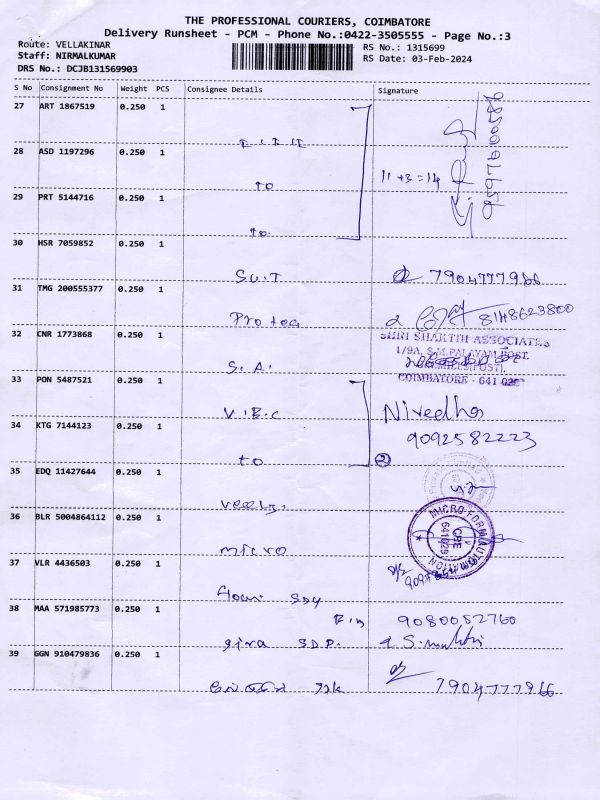 THE PROFESSIONAL COURIERS, COIMBATORE
Delivery Runsheet - PCM - Phone No.:0422-3505555 - Page No.:3
Route: VELLAKINAR
RS No.: 1315699
Staff: NIRMALKUMAR
RS Date: 03-Feb-2024
DRS No.: DCJB131569903
S No Consignment No Weight PCS Consignee Details Signature
27 ART 1867519 0.250 1
28 ASD 1197296 0.250 1
11 + 3 = 14
to
29 PRT 5144716 0.250 1
to
30 HSR 7059852 0.250 1
S.U.T 7904777966
31 TMG 200555377 0.250 1
Protea 8148623800
32 CNR 1773868 0.250 1
SHRI SHAKTHI ASSOCIATES
1/9A, S.M.PALAYAM POST,
S.A.
COIMBATORE - 641 029
33 PON 5487521 0.250 1
V.B.C Nivedha
34 KTG 7144123 0.250 1
9092582223
to 2
35 EDQ 11427644 0.250 1
36 BLR 5004864112 0.250 1
micro
MICRO FORM AUTOMATION
CBE
641 029
37 VLR 4436503 0.250 1
38 MAA 571985773 0.250 1
9080052760
39 GGN 910479836 0.250 1
7904777966